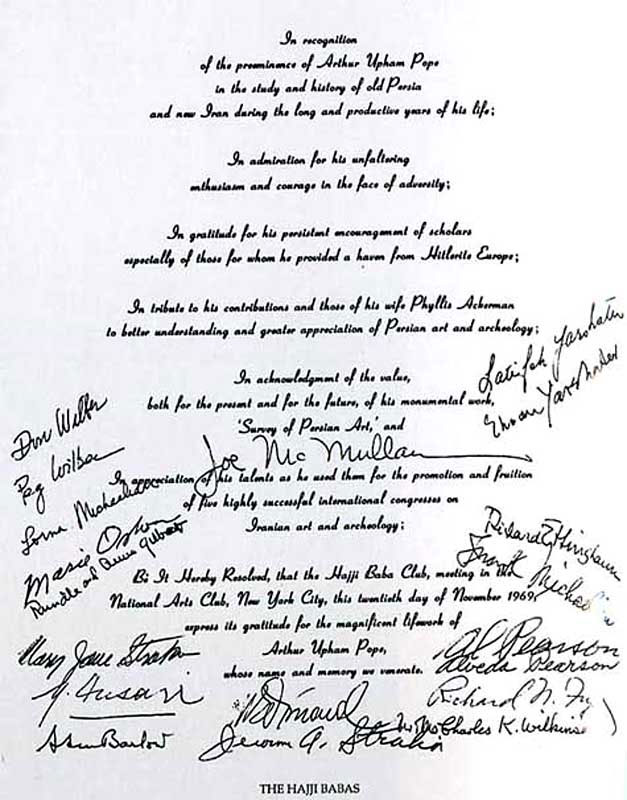 In recognition
of the preeminence of Arthur Upham Pope
in the study and history of old Persia
and new Iran during the long and productive years of his life;
In admiration for his unfaltering
enthusiasm and courage in the face of adversity;
In gratitude for his persistent encouragement of scholars
especially of those for whom he provided a haven from Hitlerite Europe;
In tribute to his contributions and those of his wife Phyllis Ackerman
to better understanding and greater appreciation of Persian art and archeology;
Latifeh Yarshater
Ehsan Yarshater
In acknowledgment of the value,
both for the present and for the future, of his monumental work,
'Survey of Persian Art,' and
Don Wilber
Peg Wilber
Joe McMullan
In appreciation of his talents as he used them for the promotion and fruition
of five highly successful international congresses on
Iranian art and archeology;
Lorna
Marie
Rundle and
Richard Ettinghausen
Be It Hereby Resolved, that the Hajji Baba Club, meeting in the
National Arts Club, New York City, this twentieth day of November 1969,
express its gratitude for the magnificent lifework of
Arthur Upham Pope,
whose name and memory we venerate.
Mary Jane
Al Pearson
Alveda Pearson
Richard N. Frye
Mr Mrs Charles K. Wilkinson
Barlow
Jerome A. Straka
THE HAJJI BABAS